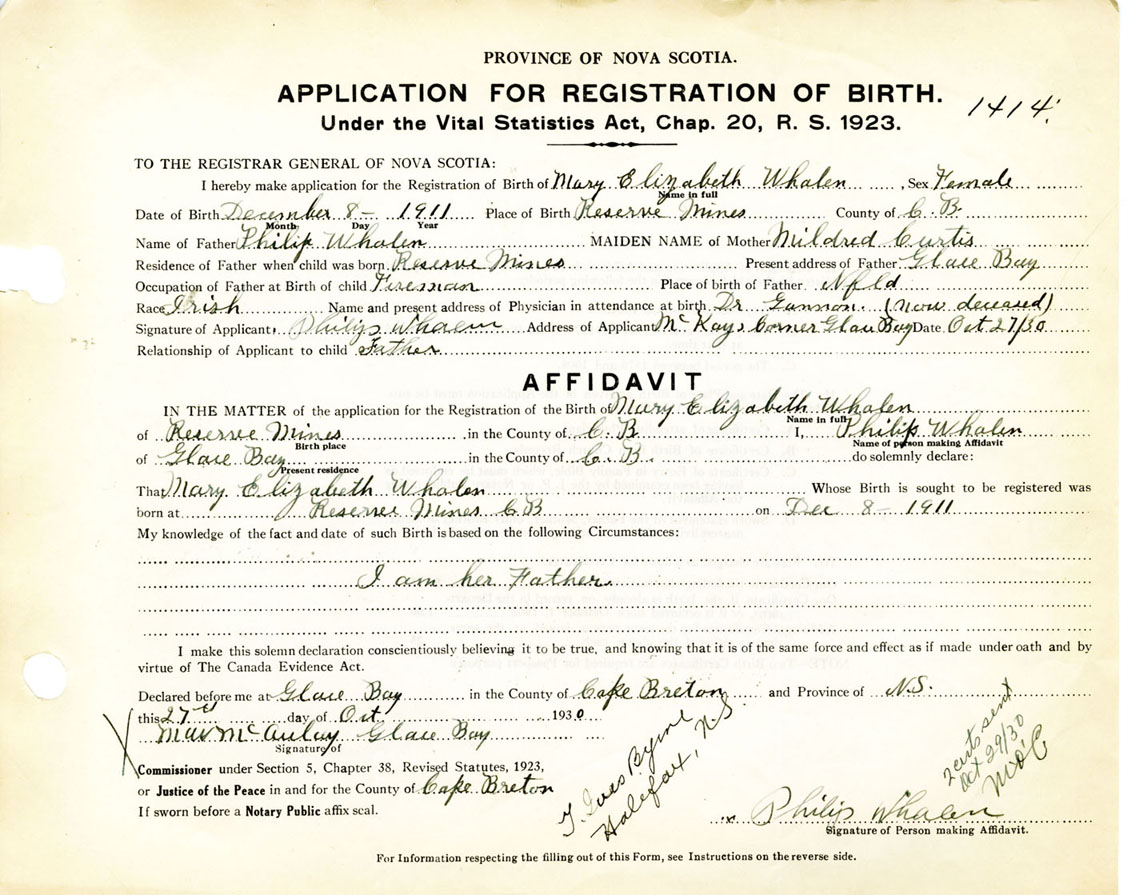 PROVINCE OF NOVA SCOTIA.
APPLICATION FOR REGISTRATION OF BIRTH.
1414.
Under the Vital Statistics Act, Chap. 20, R. S. 1923.
TO THE REGISTRAR GENERAL OF NOVA SCOTIA:
I hereby make application for the Registration of Birth of Mary Elizabeth Whalen, Sex Female
Name in full
Date of Birth December 8- 1911 Place of Birth Reserve Mines County of C.B.
Month Day Year
Name of Father Philip Whalen MAIDEN NAME of Mother Mildred Curtis
Residence of Father when child was born Reserve Mines Present address of Father Glace Bay
Occupation of Father at Birth of child Fireman Place of birth of Father Nfld
Race Irish Name and present address of Physician in attendance at birth Dr Gannon. (now deceased)
Signature of Applicant, Philip Whalen Address of Applicant McKays Corner Glace Bay Date Oct 27/30
Relationship of Applicant to child Father
AFFIDAVIT
IN THE MATTER of the application for the Registration of the Birth of Mary Elizabeth Whalen
Name in full
of Reserve Mines in the County of C.B I, Philip Whalen
Birth place Name of person making Affidavit
of Glace Bay in the County of C.B. do solemnly declare:
Present residence
That Mary Elizabeth Whalen Whose Birth is sought to be registered was
born at Reserve Mines C B on Dec 8- 1911
My knowledge of the fact and date of such Birth is based on the following Circumstances:
I am her Father.
I make this solemn declaration conscientiously believing it to be true, and knowing that it is of the same force and effect as if made under oath and by
virtue of The Canada Evidence Act.
Declared before me at Glace Bay in the County of Cape Breton and Province of N.S.
this 27th day of Oct. 1930
McAulay Glace Bay
Signature of
Commissioner under Section 5, Chapter 38, Revised Statutes, 1923,
or Justice of the Peace in and for the County of Cape Breton
If sworn before a Notary Public affix seal.
Byrne
Halifax, N.S.
2 certs sent
Oct 29/30
x Philip Whalen
Signature of Person making Affidavit.
For Information respecting the filling out of this Form, see Instructions on the reverse side.